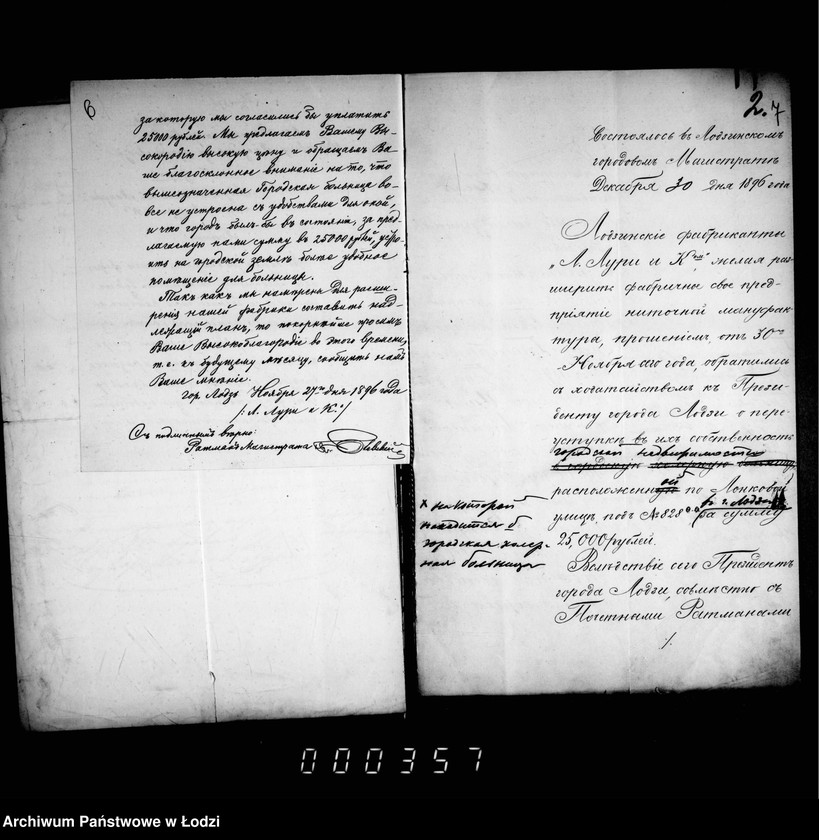 6
за которую мы согласились бы уплатить
25000 рублей. Мы предлагаемъ Вашему Вы-
сокородію высокую цѣну и обращаемъ Ва-
ше благосклонное вниманіе на то, что
вышеозначенная Городская больница во-
все не устроена съ удобствами для оной,
и что городъ былъ бы въ состояніи, за пред-
лагаемую нами сумму въ 25000 рублей, устро-
ить на городской землѣ болѣе удобное
помѣщеніе для больницы.
Такъ какъ мы намѣрены для расши-
ренія нашей фабрики составить над-
лежащій планъ, то покорнѣйше просимъ
Ваше Высокоблагородіе до этого времени,
т. е. къ будущему мѣсяцу, сообщить намъ
Ваше мнѣніе.
гор. Лодзь Ноября 27го дня 1896 года
/: Л. Лури и Ко :/
Съ подлиннымъ вѣрно:
Ратманъ Магистрата
2. 7
Состоялось въ Лодзинскомъ
городовомъ Магистратѣ
Декабря 30 дня 1896 года
Лодзинскіе фабриканты
„Л. Лури и Кнія", желая рас-
ширить фабричное свое пред-
пріятіе ниточной мануфак-
тура, прошеніемъ, отъ 30го
Ноября сего года, обратились
съ ходатайствомъ къ Прези-
денту города Лодзи о пере-
уступкѣ въ ихъ собственность
городской недвижимости
въ городскую холерную больницу
расположенную ой по Лонковой
улицѣ подъ № 828 въ г. Лодзи за сумму
25,000 рублей.
х на которой
находится
городская холер-
ная больница
Вслѣдствіе сего Президентъ
города Лодзи, совмѣстно съ
Почетными Ратманами
./.
000357
Archiwum Państwowe w Łodzi